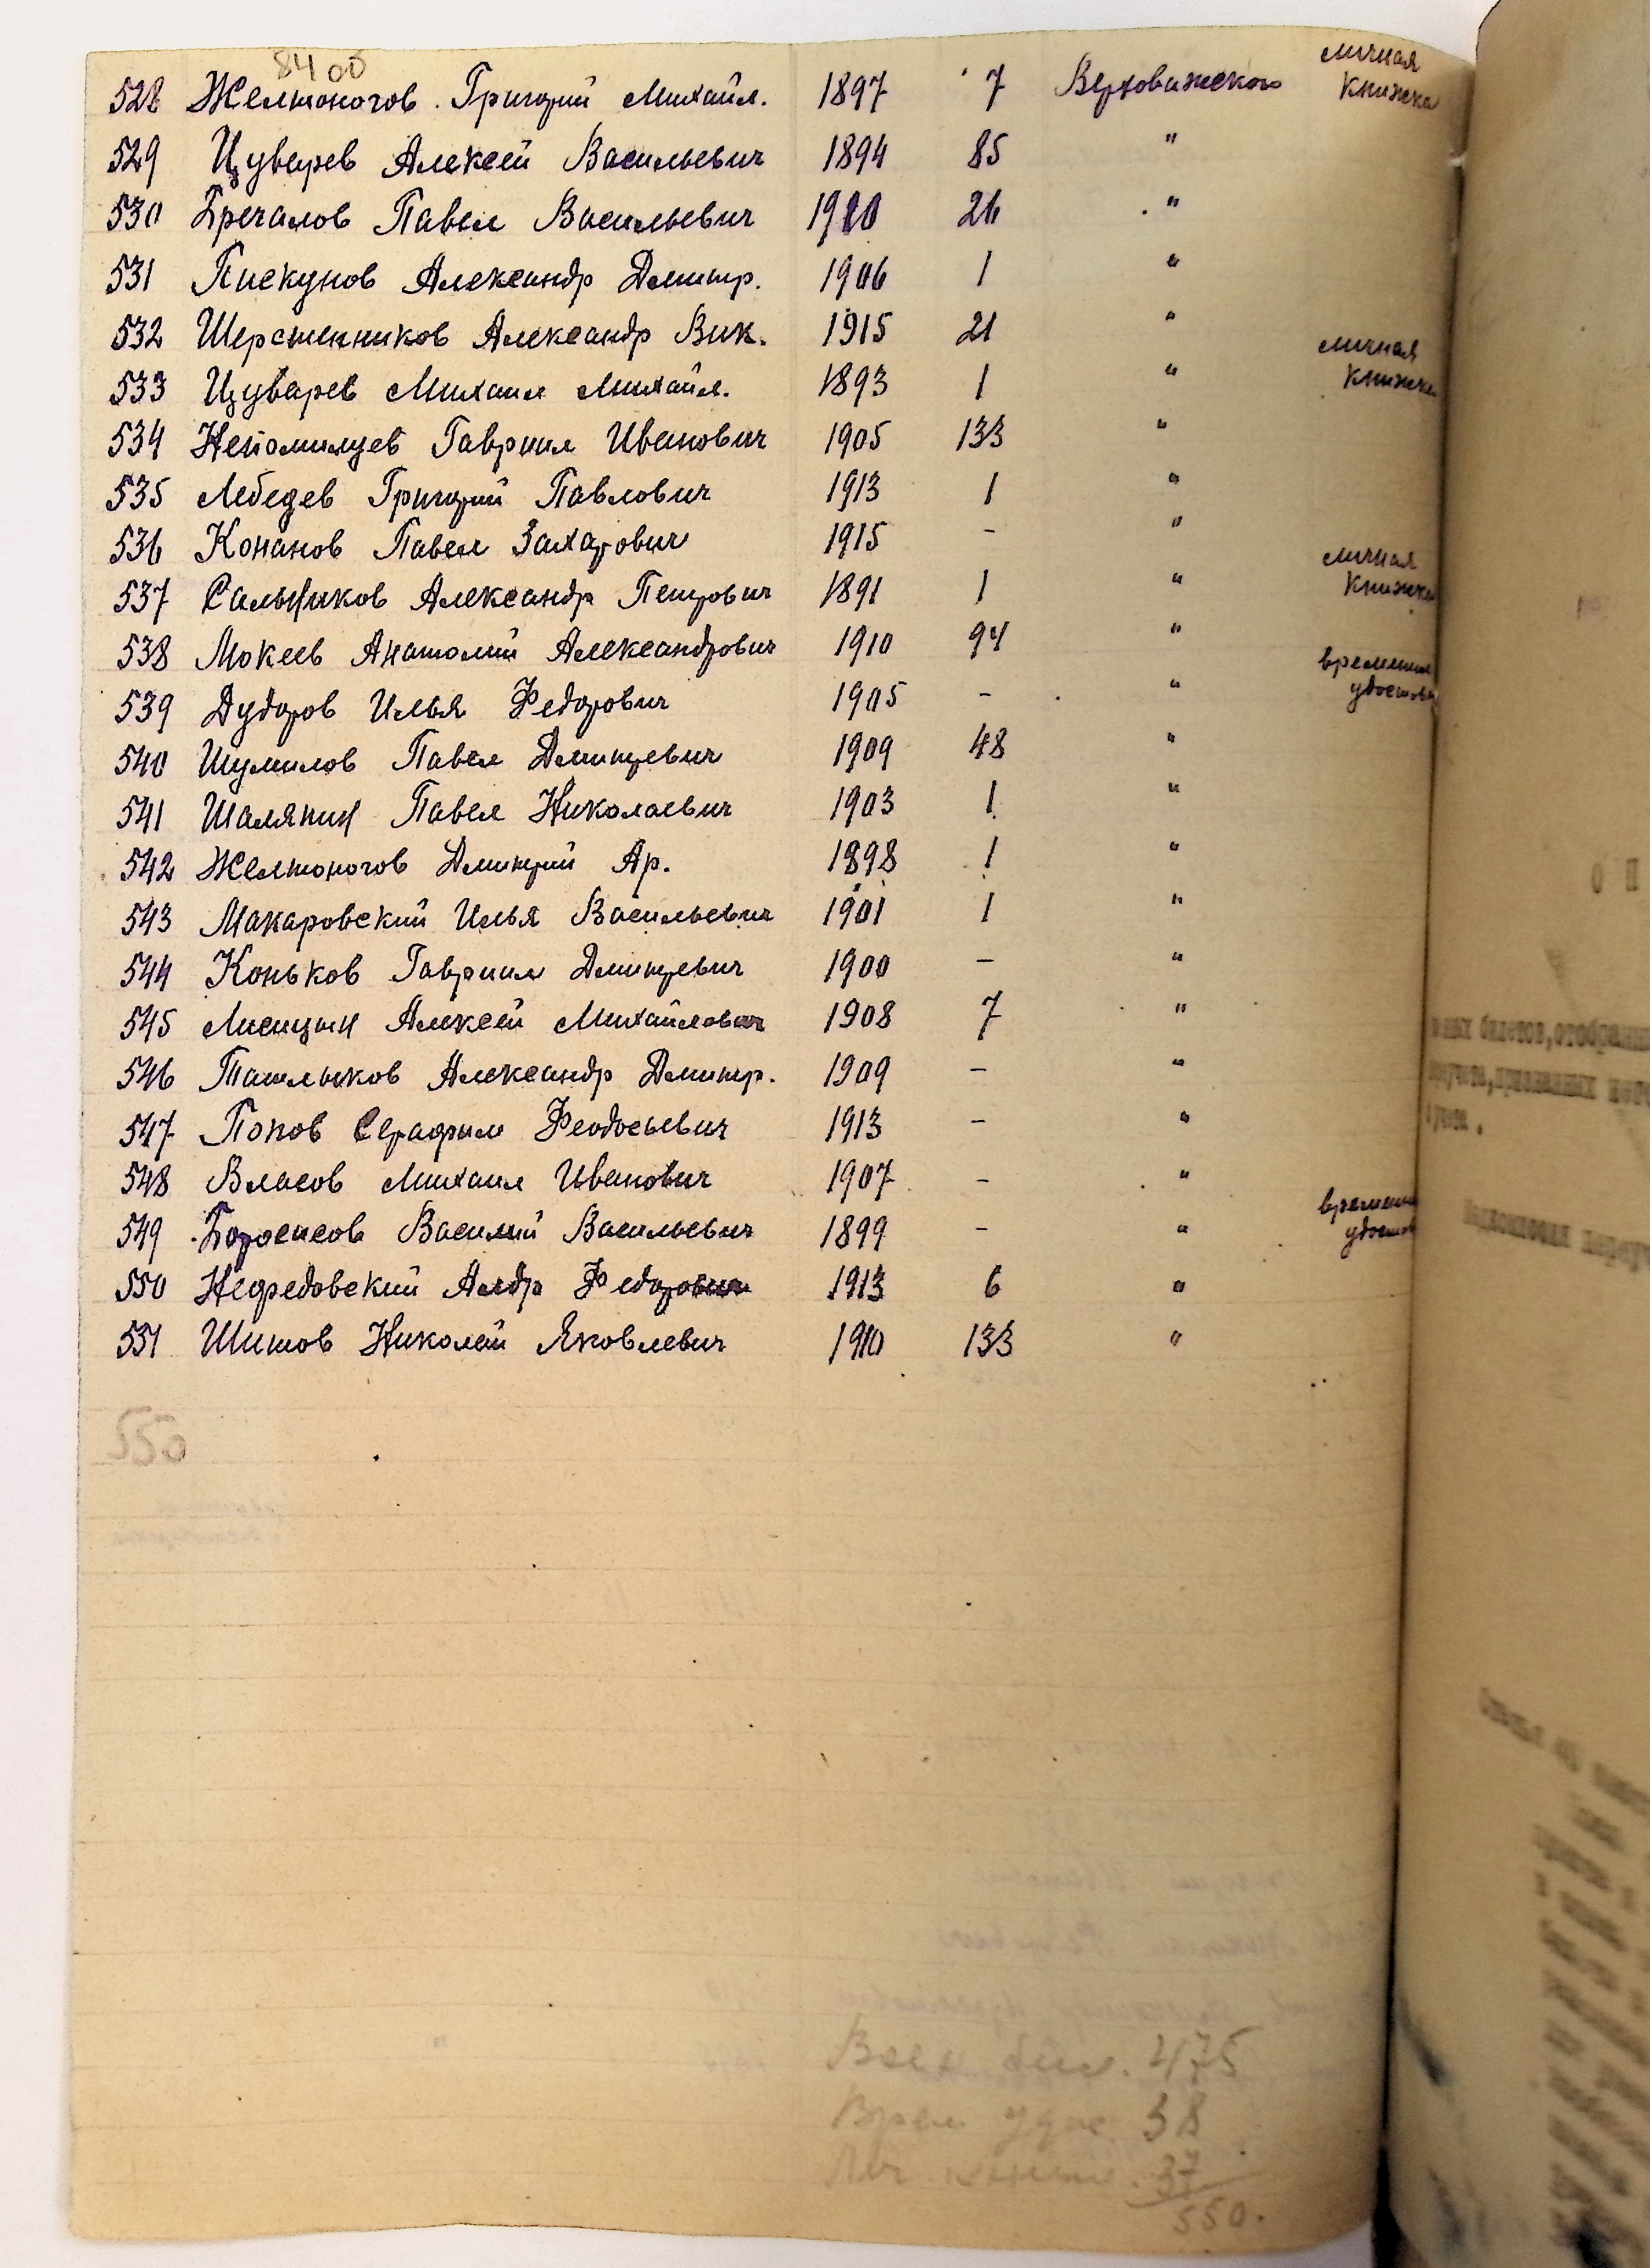 8400
528 Желтоногов Григорий Михайл. 1897 7 Верховажского личная книжка
529 Цуварев Алексей Васильевич 1894 85 "
530 Бречалов Павел Васильевич 1910 26 "
531 Пискунов Александр Дмитр. 1906 1 "
532 Шерстенников Александр Вик. 1915 21 "
533 Цуварев Михаил Михайл. 1893 1 " личная книжка
534 Непомилуев Гавриил Иванович 1905 133 "
535 Лебедев Григорий Павлович 1913 1 "
536 Конанов Павел Захарович 1915 - "
537 Сальников Александр Петрович 1891 1 " личная книжка
538 Мокеев Анатолий Александрович 1910 94 "
539 Дудоров Илья Федорович 1905 - "
540 Шумилов Павел Дмитревич 1909 48 "
541 Шаляпин Павел Николаевич 1903 1 "
542 Желтоногов Дмитрий Ар. 1898 1 "
543 Макаровский Илья Васильевич 1901 1 "
544 Коньков Гавриил Дмитревич 1900 - "
545 Лисицын Алексей Михайлович 1908 7 "
546 Ташлыков Александр Дмитр. 1909 - "
547 Попов Серафим Феодосьевич 1913 - "
548 Власов Михаил Иванович 1907 - "
549 Василий Васильевич 1899 - "
550 Нефедовский Ал-др Федорович 1913 6 "
551 Шитов Николай Яковлевич 1910 133 "
550
Воен. бил. 475
Врем удос. 38
Лич. книжк. 37
550.